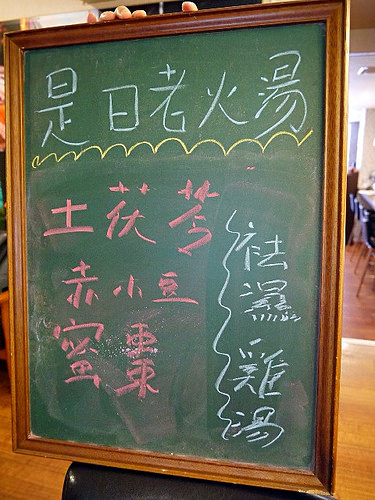 是日老火湯
土茯苓
赤小豆
蜜棗
祛濕雞湯